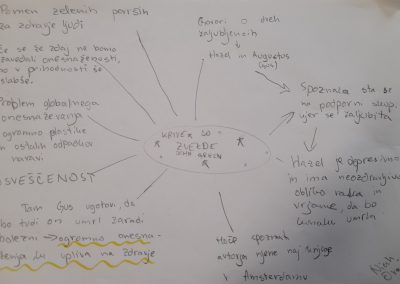 Pomen zelenih površin
za zdravje ljudi
Če se že zdaj ne bomo
zavedali onesnaženosti,
bo v prihodnosti še
slabše.
Problem globalnega
onesnaževanja
ogromno plastike
in ostalih odpadkov
v naravi
OSVEŠČENOST
Tam Gus ugotovi, da
bo tudi on umrl zaradi
bolezni → ogromno onesna-
ženja ki vpliva na zdravje
KRIVE SO
ZVEZDE
JOHN GREEN
Govori o dveh
zaljubljencih
Hazel in Augustus
(Gus)
Spoznata sta se
na podporni skup.
kjer se zaljubita
Hazel je depresivna
in ima neozdravljivo
obliko raka in
verjame, da bo
kmalu umrla
Hoče spoznati
avtorja njene naj knjige
v Amsterdamu